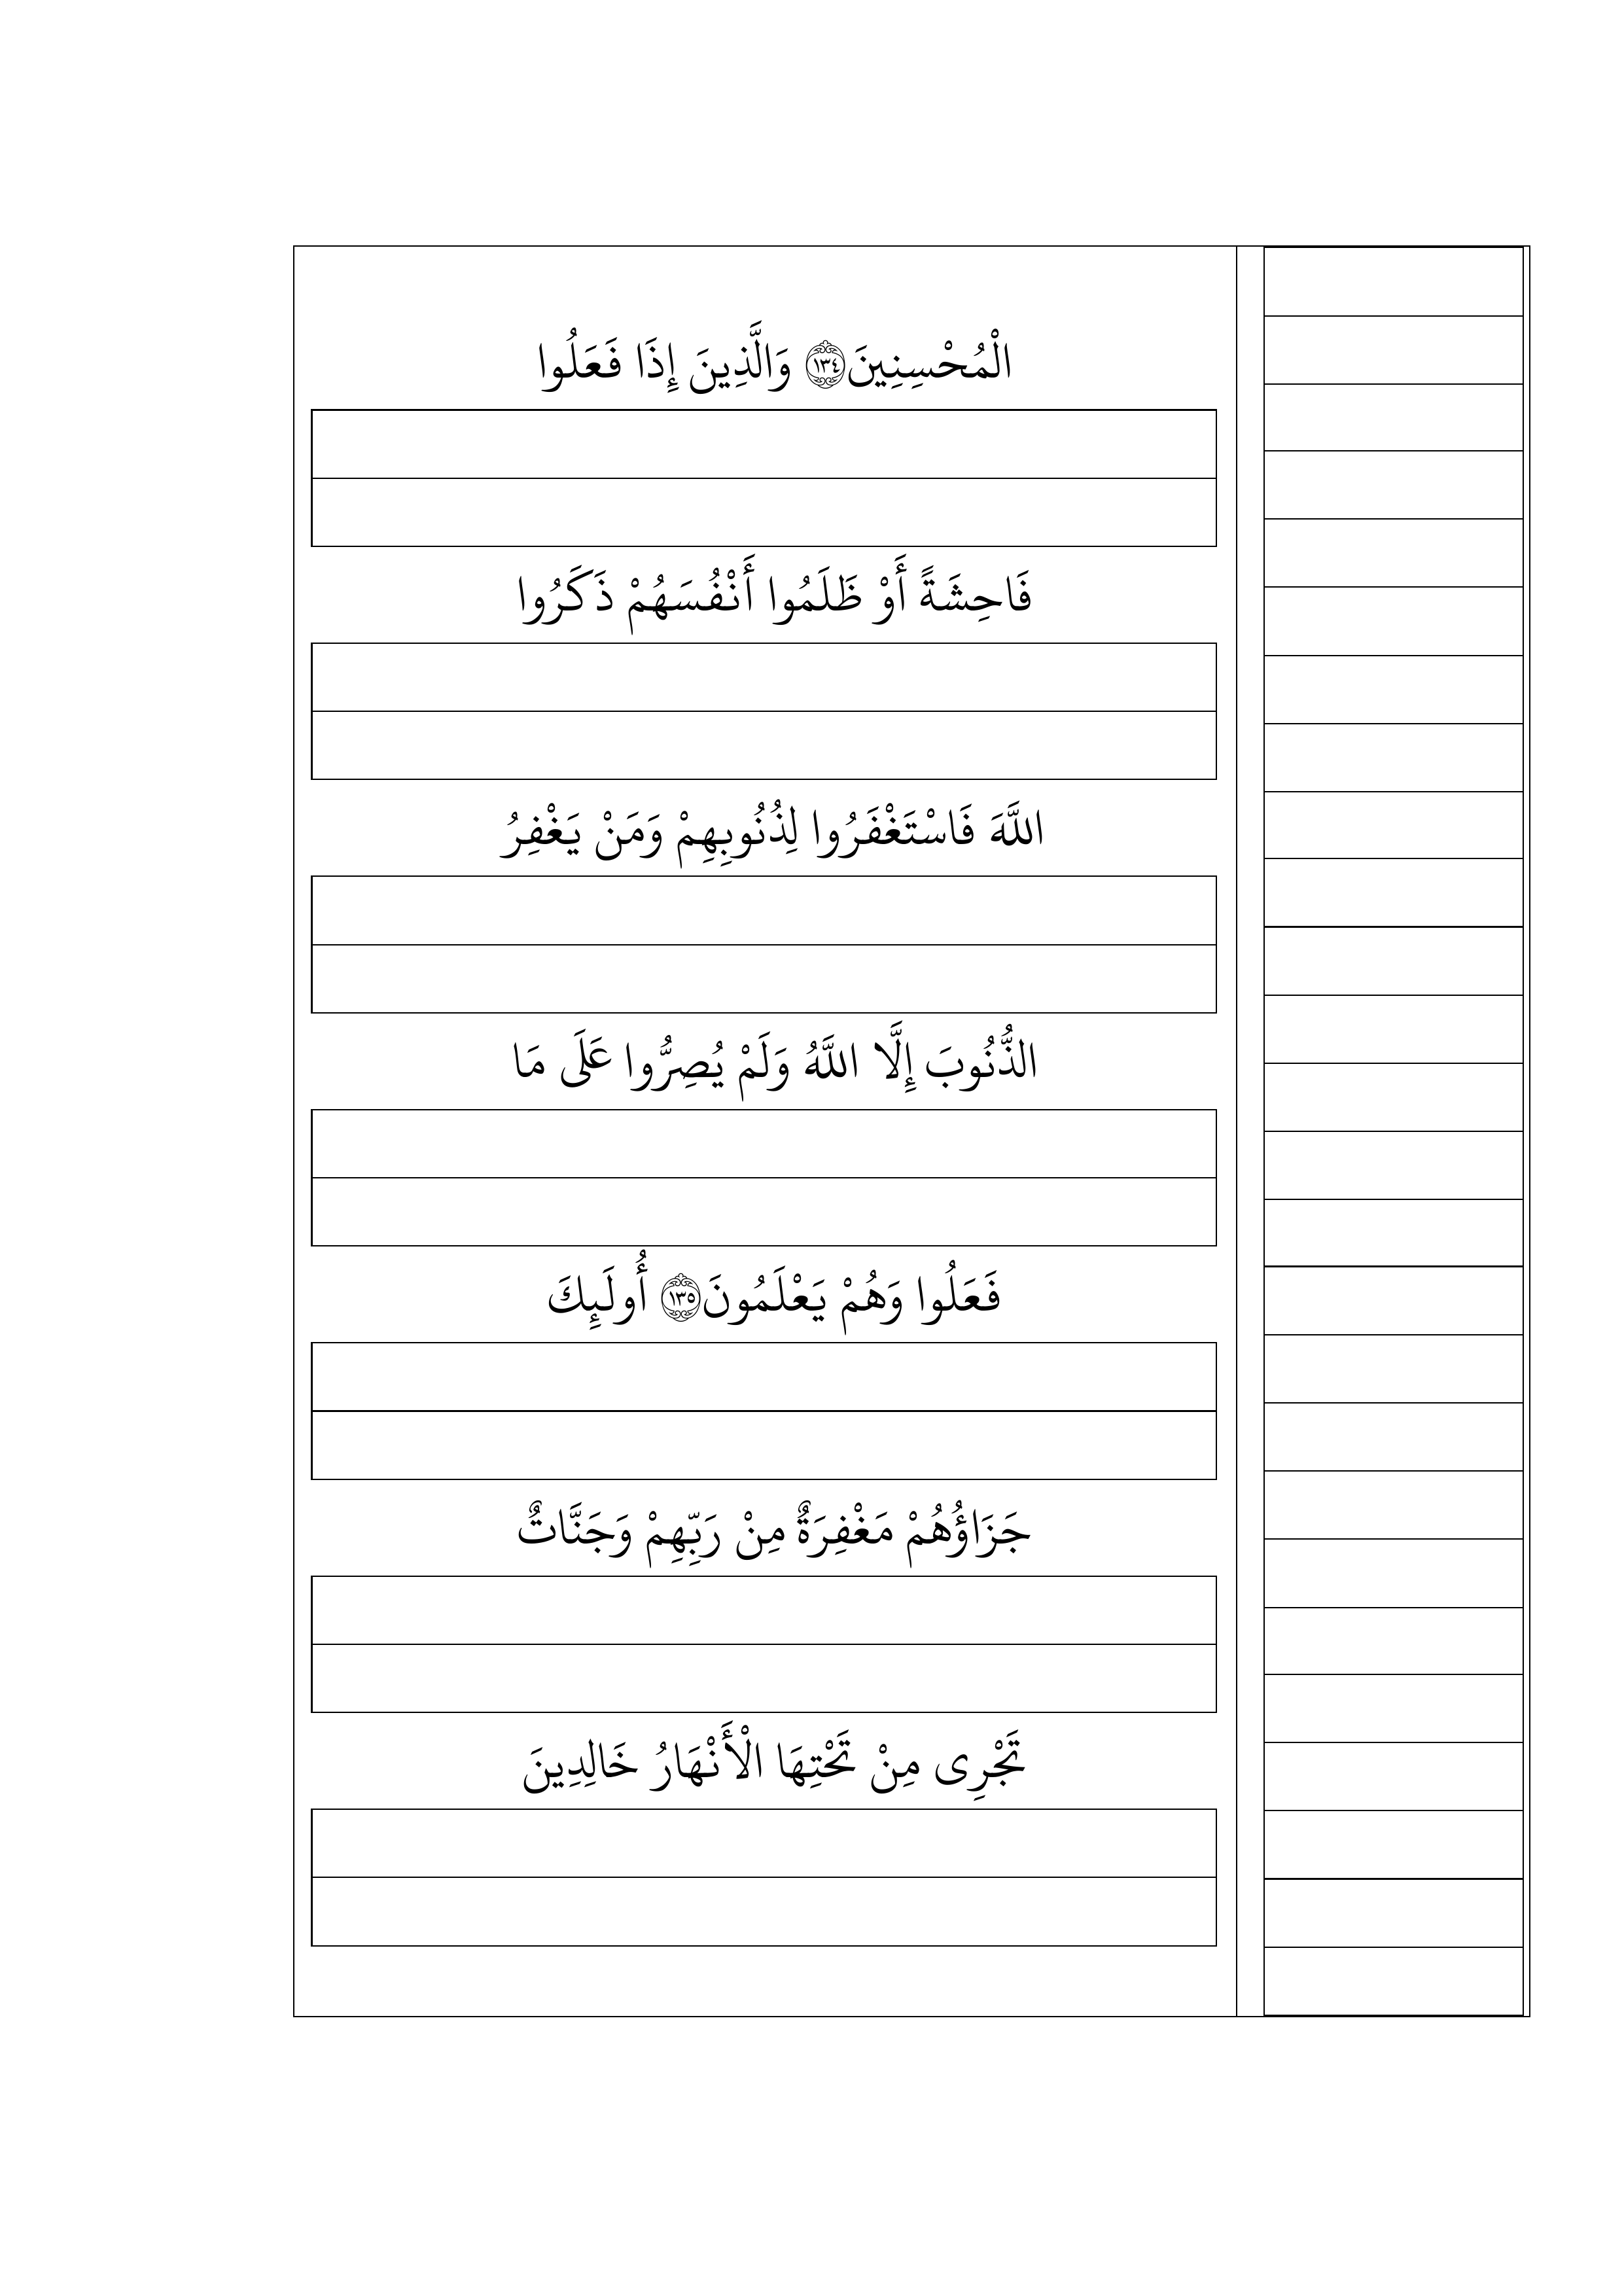 الْمُحْسِنِينَ ۝١٣٤ وَالَّذِينَ إِذَا فَعَلُوا
فَاحِشَةً أَوْ ظَلَمُوا أَنْفُسَهُمْ ذَكَرُوا
اللَّهَ فَاسْتَغْفَرُوا لِذُنُوبِهِمْ وَمَنْ يَغْفِرُ
الذُّنُوبَ إِلَّا اللَّهُ وَلَمْ يُصِرُّوا عَلَى مَا
فَعَلُوا وَهُمْ يَعْلَمُونَ ۝١٣٥ أُولَئِكَ
جَزَاؤُهُمْ مَغْفِرَةٌ مِنْ رَبِّهِمْ وَجَنَّاتٌ
تَجْرِى مِنْ تَحْتِهَا الْأَنْهَارُ خَالِدِينَ